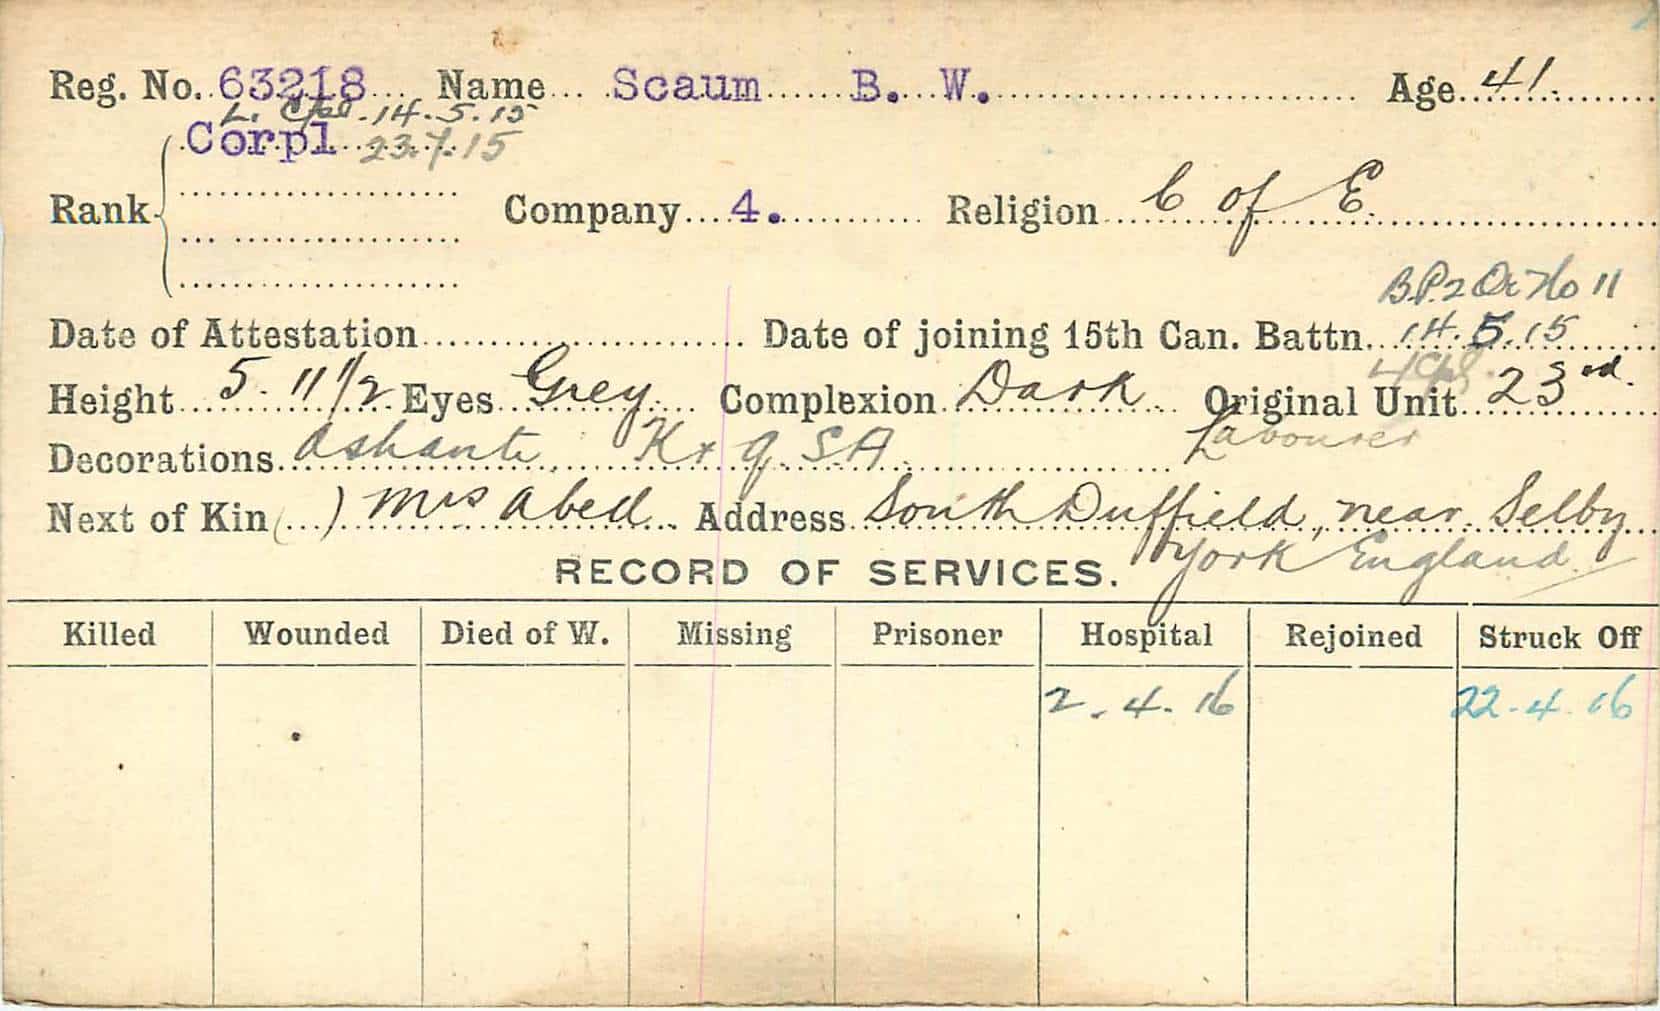 Reg. No. 63218 Name Scaum B. W. Age 41
L. Cpl. 14.5.15
Corpl 23.7.15
Rank Company 4. Religion C of E.
B.P.2 Or No 11
Date of Attestation Date of joining 15th Can. Battn. 14.5.15
Height 5. 11 1/2 Eyes Grey Complexion Dark Original Unit 23rd.
Labourer
Decorations Ashanti, K & Q. S A.
Next of Kin ( ) Mrs Abed Address South Duffield, near Selby
York England
RECORD OF SERVICES.
Killed Wounded Died of W. Missing Prisoner Hospital Rejoined Struck Off
2.4.16 22.4.16